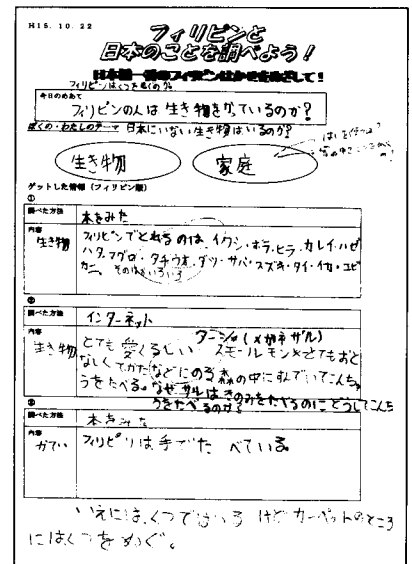 H15.10.22
フィリピンと
日本のことを調べよう！
日本一のフィリピンはかせをめざして！
フィリピンはくつをぬぐのか
今日のめあて
フィリピンの人は生き物をかっているのか?
ぼくの・わたしのテーマ 日本にいない生き物はいるのか?
生き物
家庭
ゲットした情報(フィリピン版)
①
調べた方法
本をみた
内容
生き物
フィリピンでとれるのは、イワシ・ボラ・ヒラ、カレイ・ハゼ
ハタ、マグロ・タチウオ、ダツ・サバ・スズキ・タイ・イカ・エビ
カニ、そのほかいろいろ
②
調べた方法
インターネット
内容
生き物
ターシャ(メガネザル)
とても愛くるしい スモールモンキーとてもおと
なしくてかたなどにのる森の中にすんでいてこんち
うをたべる。なぜサルはきのみをたべるのにどうしてこんち
うをたべるのか?
③
調べた方法
本をみた
内容
かてい
フィリピンは手でたべている
いえには、くつではいる けど カーペットのところ
にはくつをぬぐ。